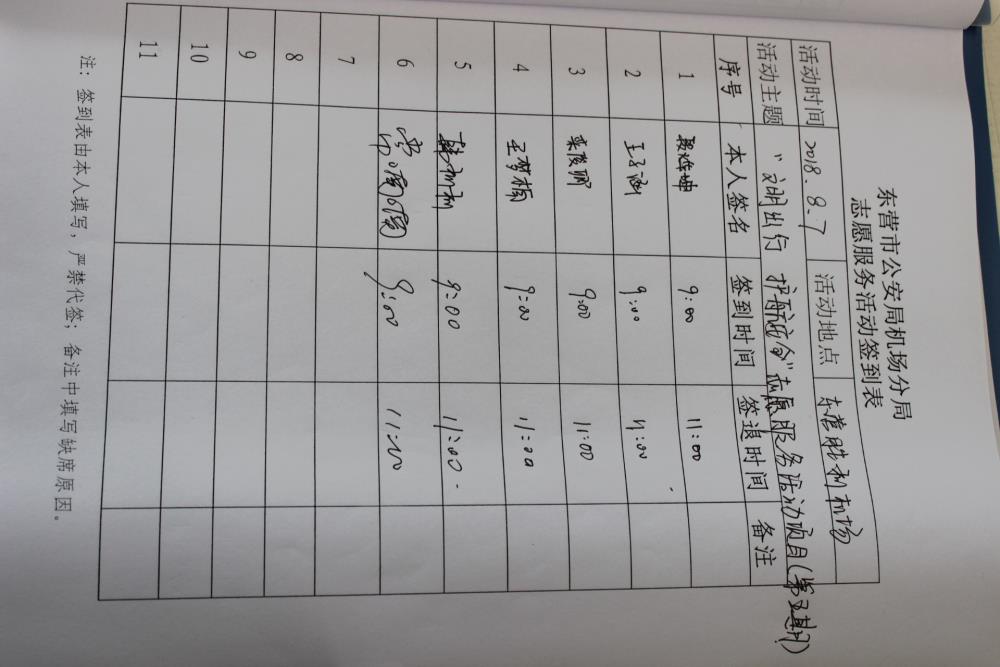 东营市公安局机场分局
志愿服务活动签到表
活动时间 2018.8.7 活动地点 东营胜利机场
活动主题 "文明出行 护航 " 志愿服务活动项目(第 期)
序号 本人签名 签到时间 签退时间 备注
1 9:00 11:00
2 王子涵 9:00 11:00
3 9:00 11:00
4 王梦楠 9:00 11:00
5 9:00 11:00
6 9:00 11:00
7
8
9
10
11
注:签到表由本人填写,严禁代签;备注中填写缺席原因。